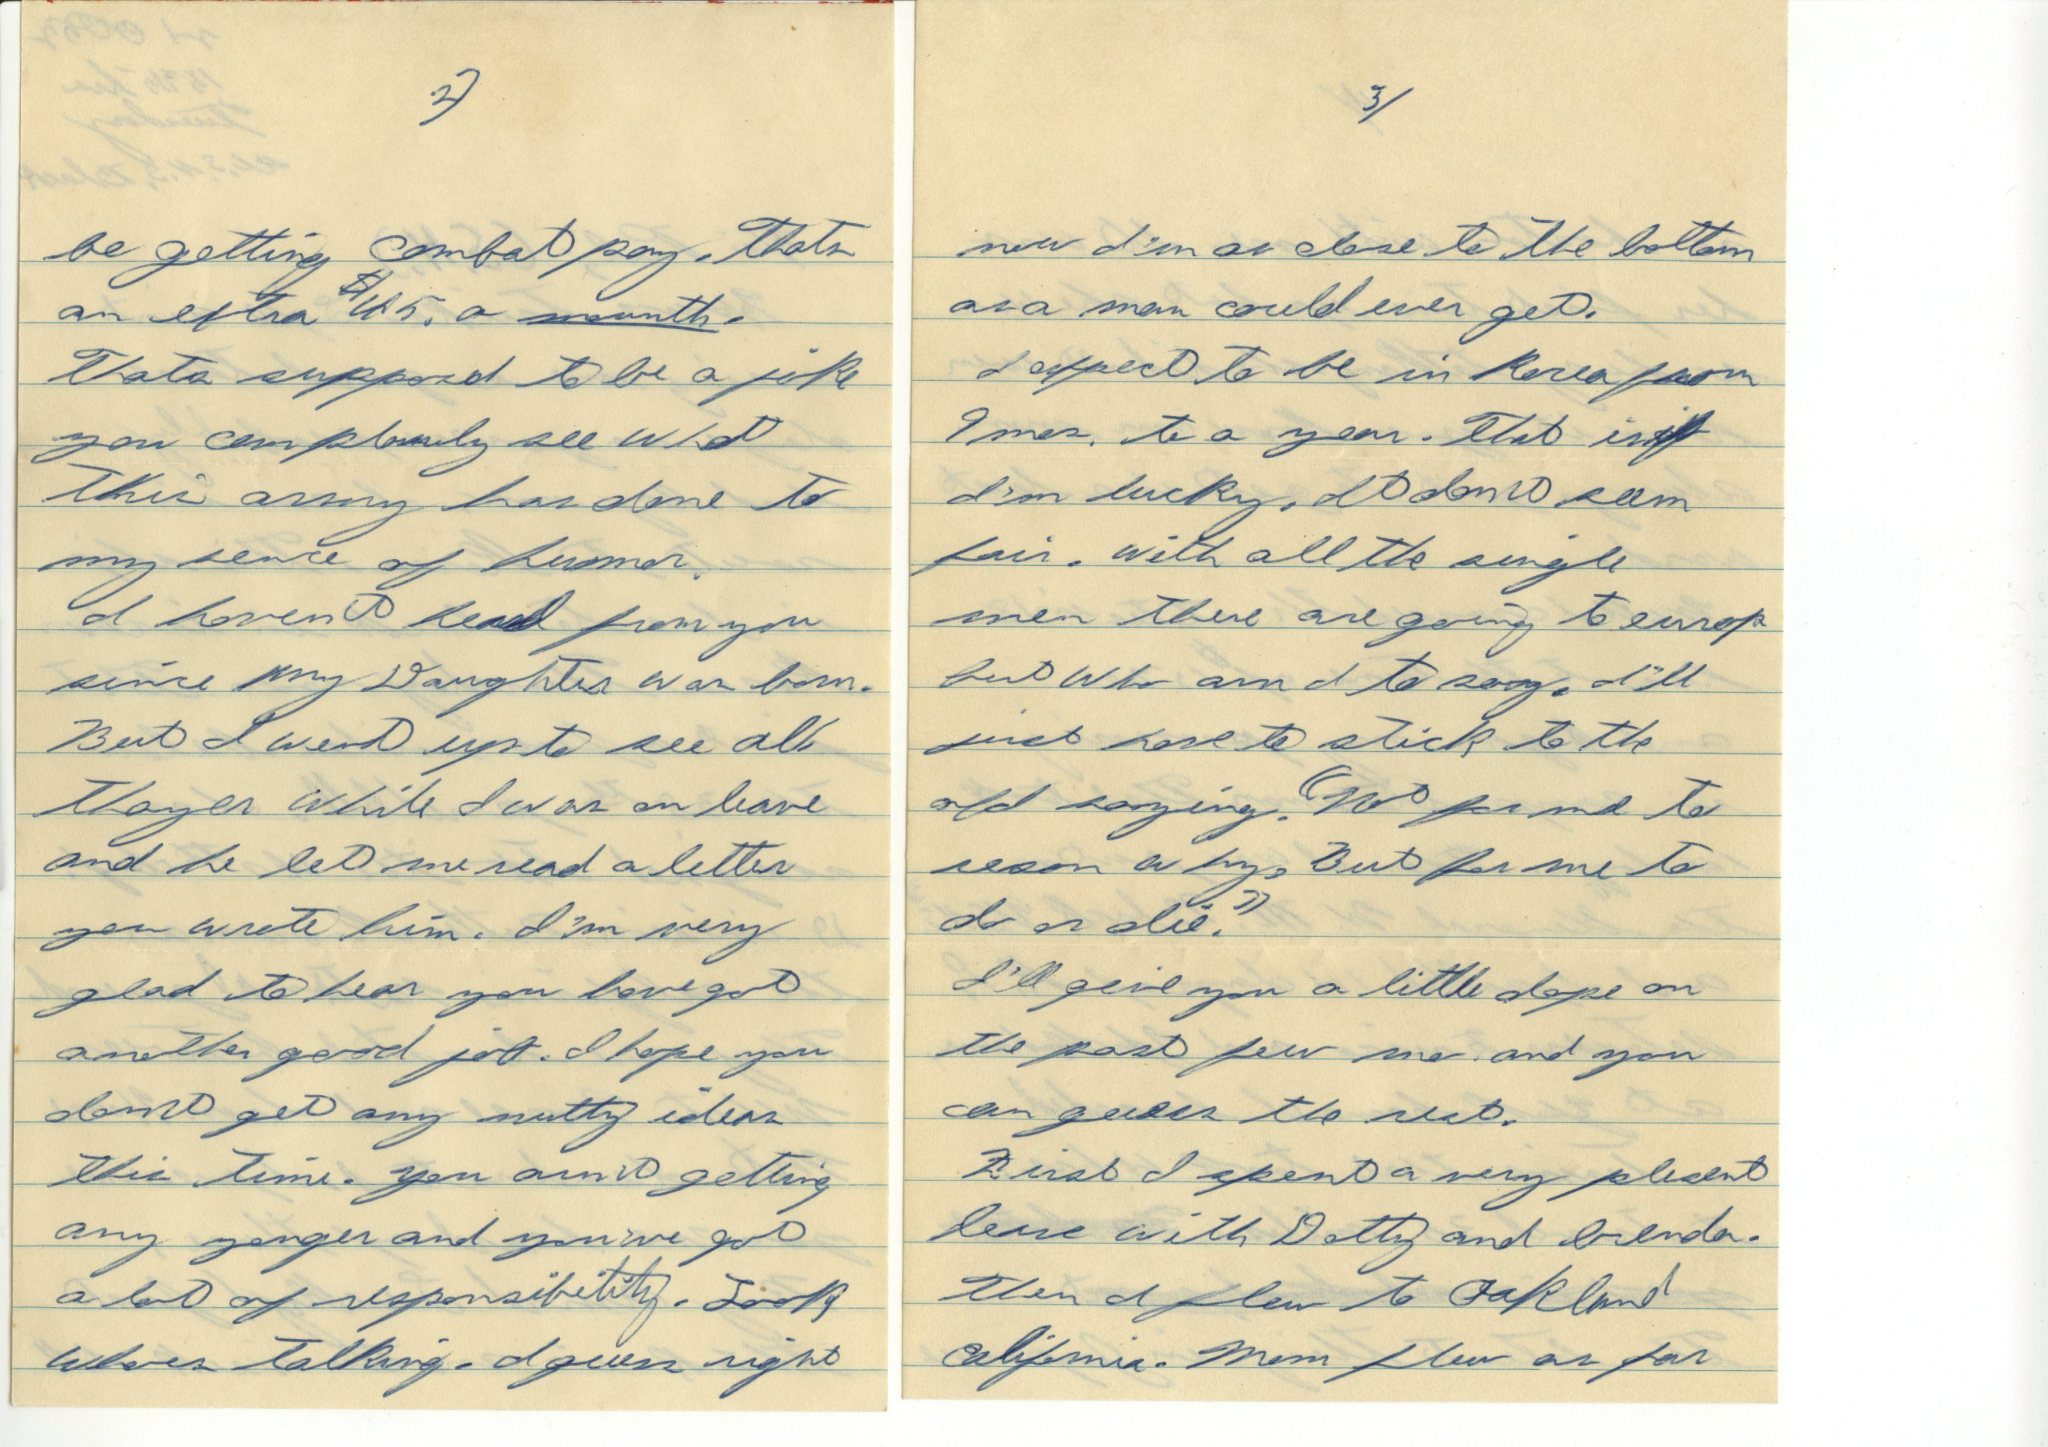 2)
be getting combat pay. Thats
an extra $45. a mounth.
Thats supposed to be a joke
you can planely see what
this army has done to
my sence of humor.
I haven't heard from you
since my Daughter was born.
But I went up to see
thayer while I was on leave
and he let me read a letter
you wrote him. I'm very
glad to hear you have got
another good job. I hope you
don't get any nutty ideas
this time. you arn't getting
any yonger and you've got
a lot of responsibitity. Look
whoes talking. I guess right
3/
now I'm as close to the bottom
as a man could ever get.
I expect to be in Korea from
9 mos. to a year. That is if
I'm lucky. It don't seem
fair. with all the single
men there are going to europ
but who am I to say. I'll
just have to stick to the
old saying. "Not for me to
reson why, But for me to
do or die."
I'll give you a little dope on
the past few mo. and you
can guess the rest.
First I spent a very plesent
leave with Dotty and brenda.
then I flew to Oakland
California. Mom flew as far